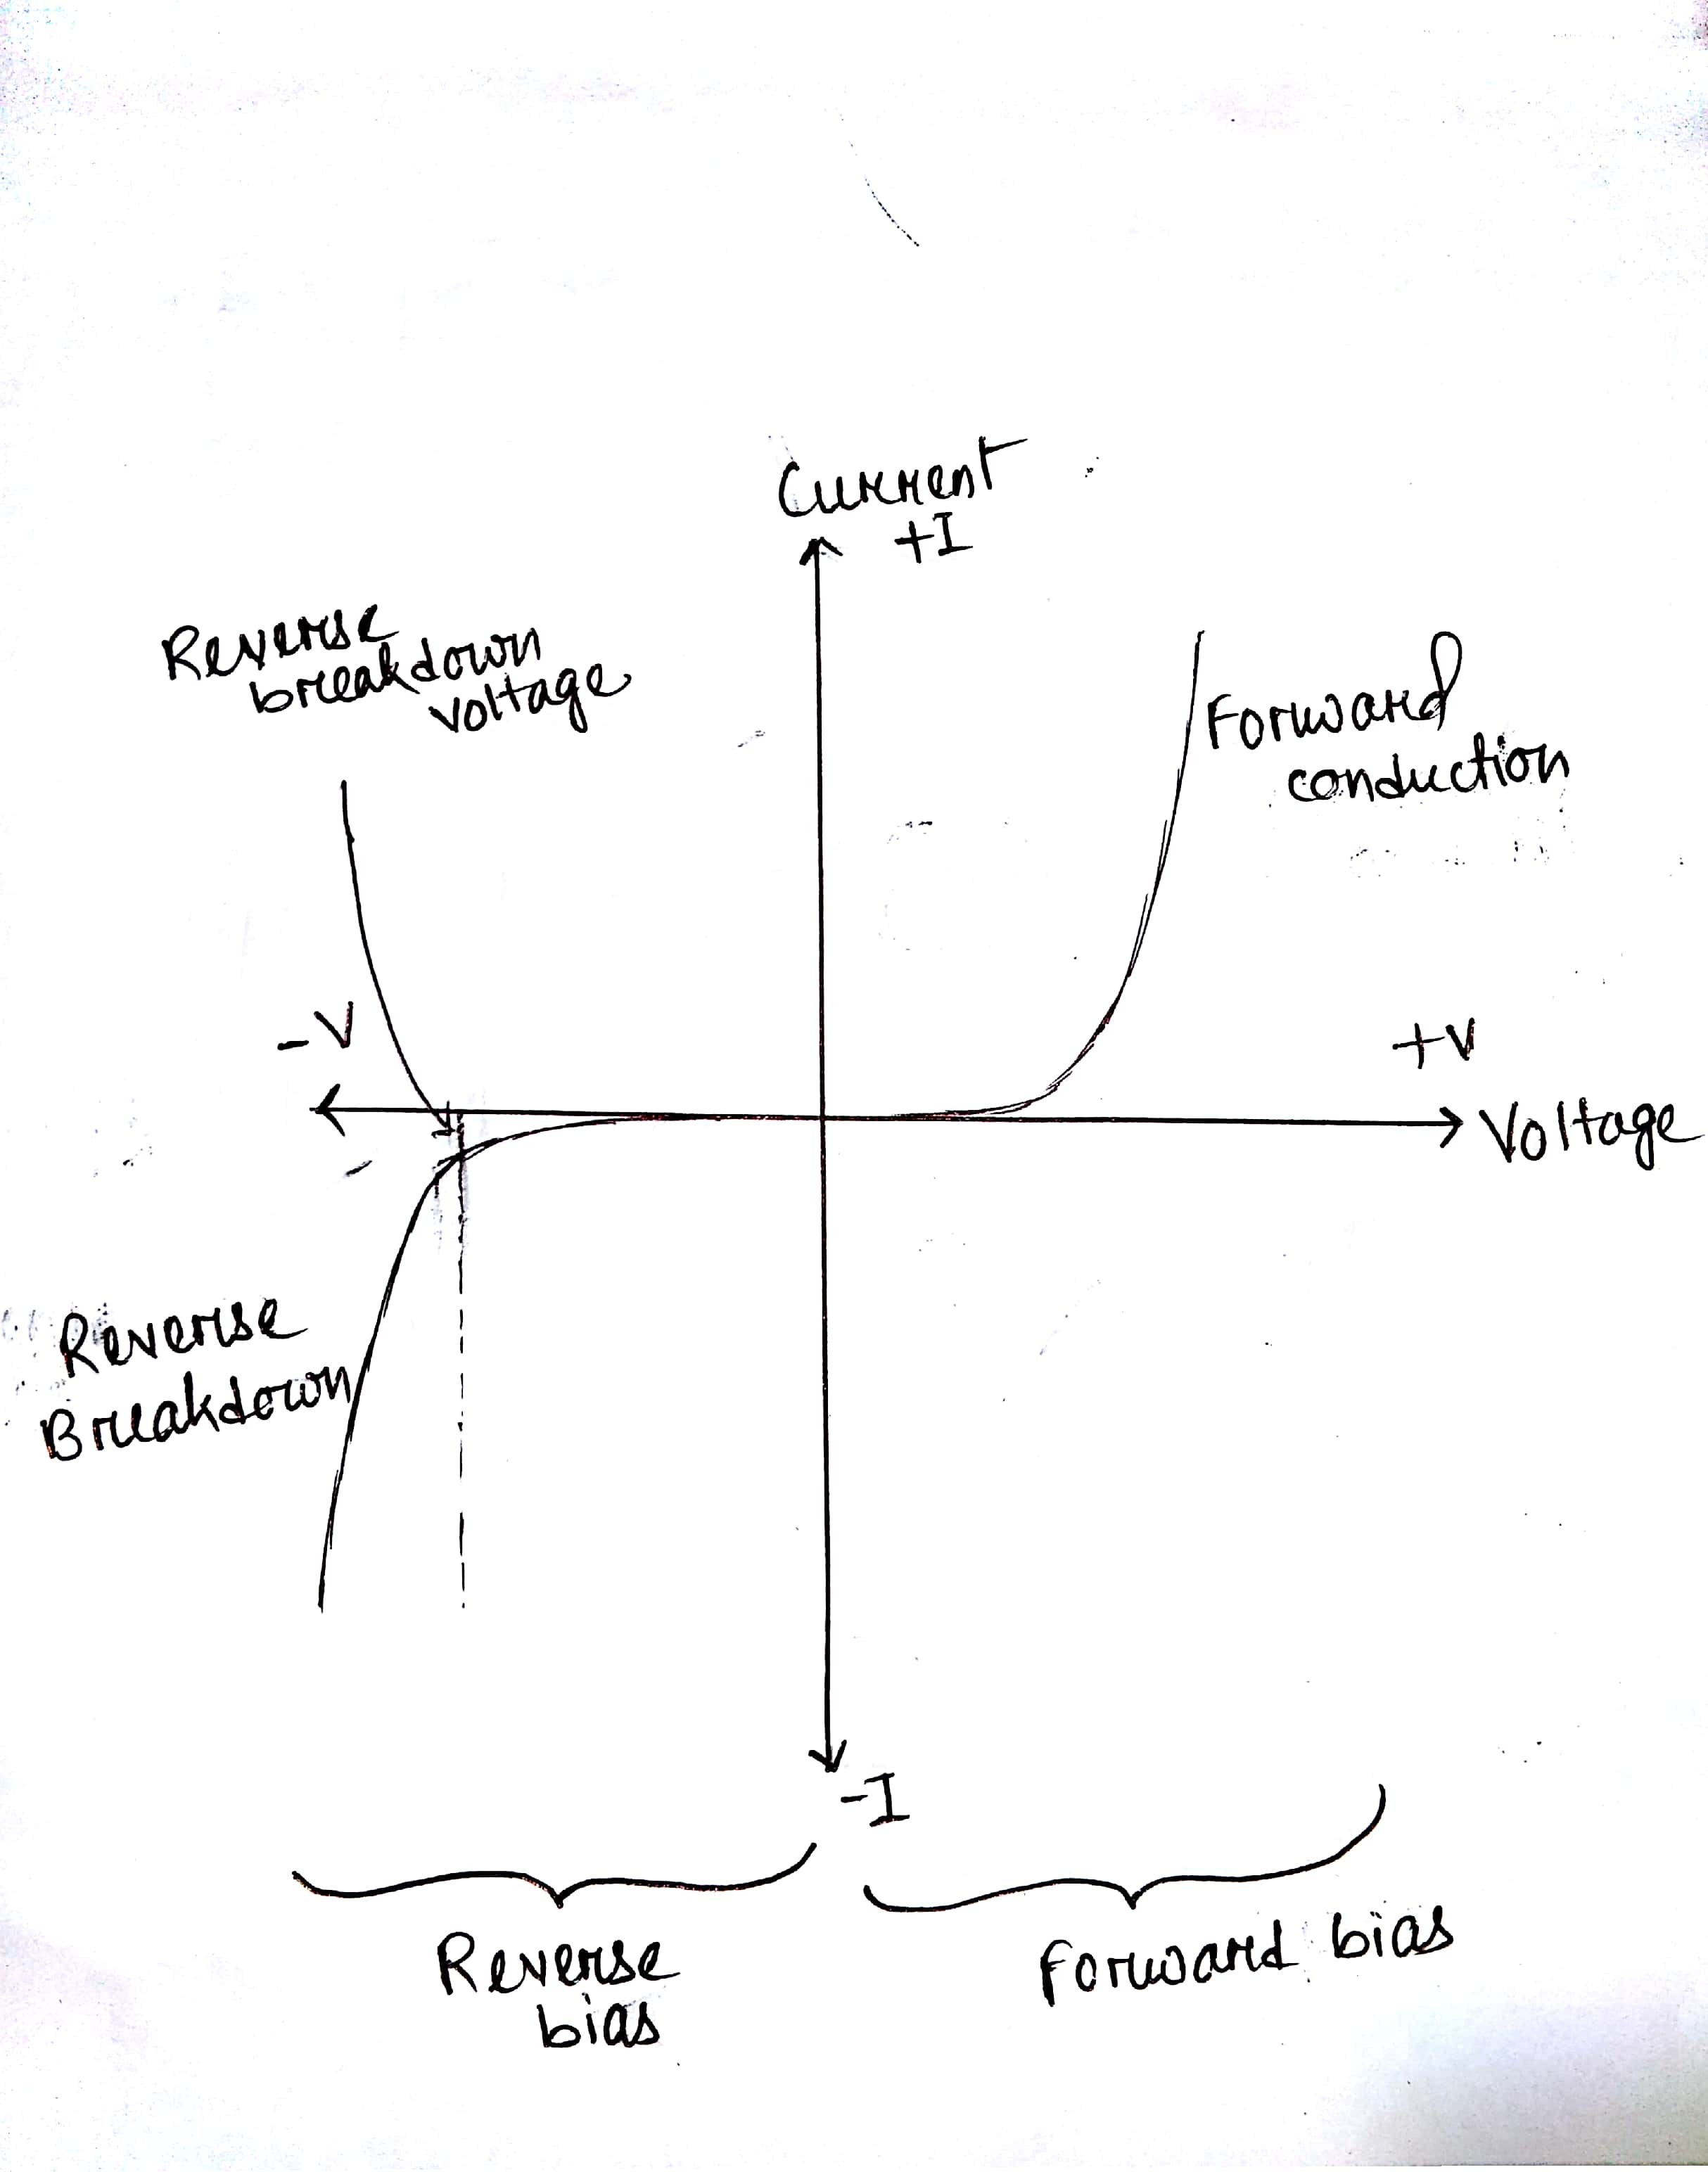 Current
+I
Reverse
breakdown
voltage
Forward
conduction
-V
+V
Voltage
Reverse
Breakdown
-I
Reverse
bias
Forward bias